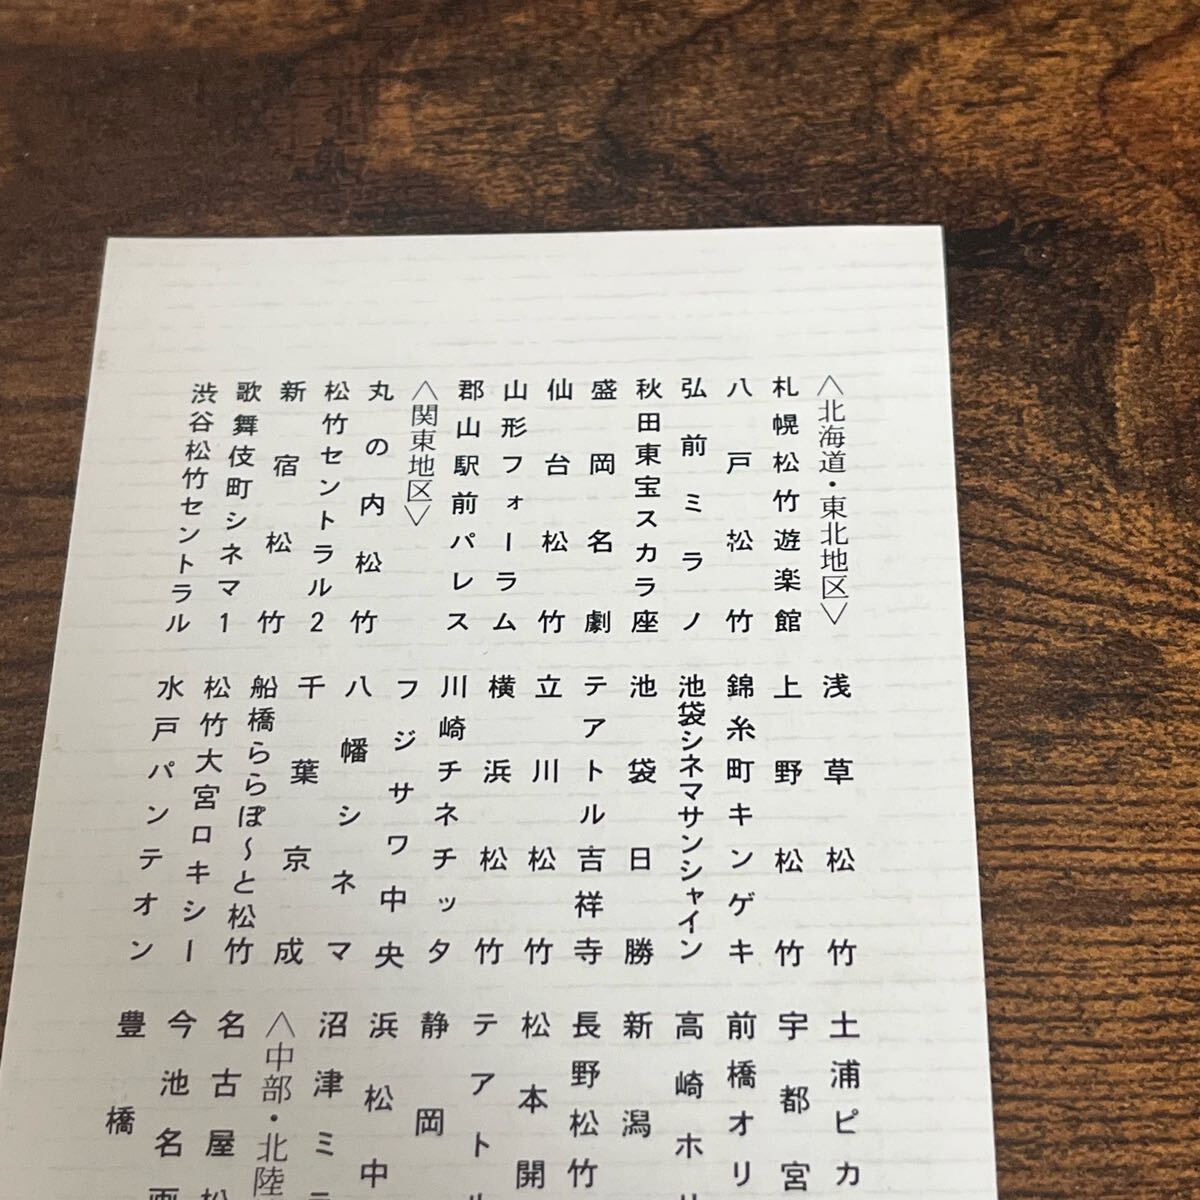 〈北海道・東北地区〉
札幌松竹遊楽館
八戸松竹
弘前ミラノ
秋田東宝スカラ座
盛岡名劇
仙台松竹
山形フォーラム
郡山駅前パレス
〈関東地区〉
丸の内松竹
松竹セントラル2
新宿松竹
歌舞伎町シネマ1
渋谷松竹セントラル
浅草松竹
上野松竹
錦糸町キンゲキ
池袋シネマサンシャイン
池袋日勝
テアトル吉祥寺
立川松竹
横浜松竹
川崎チネチッタ
フジサワ中央
八幡シネマ
千葉京成
船橋ららぽ〜と松竹
松竹大宮ロキシー
水戸パンテオン
土浦ピカ
宇都宮
前橋オリ
高崎ホリ
新潟
長野松竹
松本開
テアトル
静岡
浜松中
沼津ミラ
〈中部・北陸
名古屋松
今池名画
豊橋